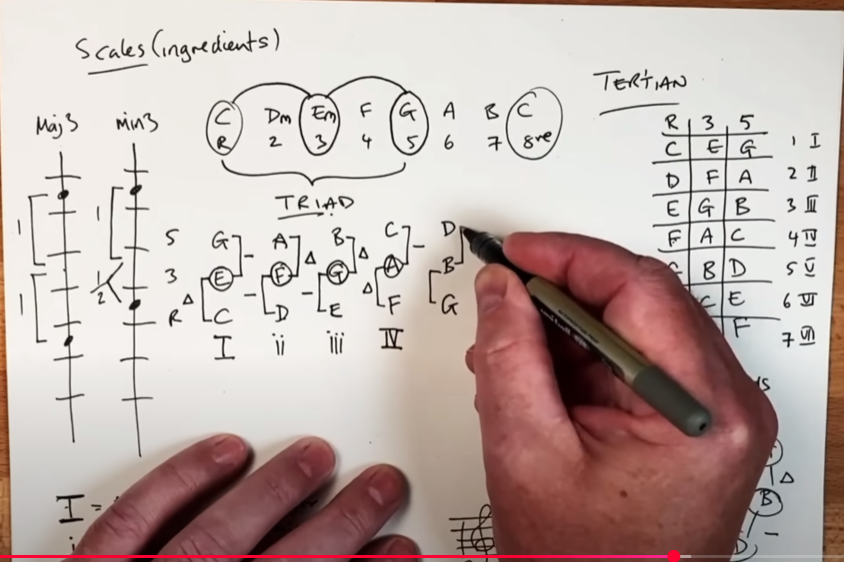 Scales (ingredients)
TERTIAN
Maj3 min3
C Dm Em F G A B C
R 2 3 4 5 6 7 8ve
TRIAD
R 3 5
C E G 1 I
D F A 2 II
E G B 3 III
F A C 4 IV
B D 5 V
C E 6 VI
F 7 VII
1 1
1 1/2
5 G - A Δ B Δ C - D
3 E F G A B
R Δ C - D - E Δ F G
I ii iii IV
I =
B Δ
D -